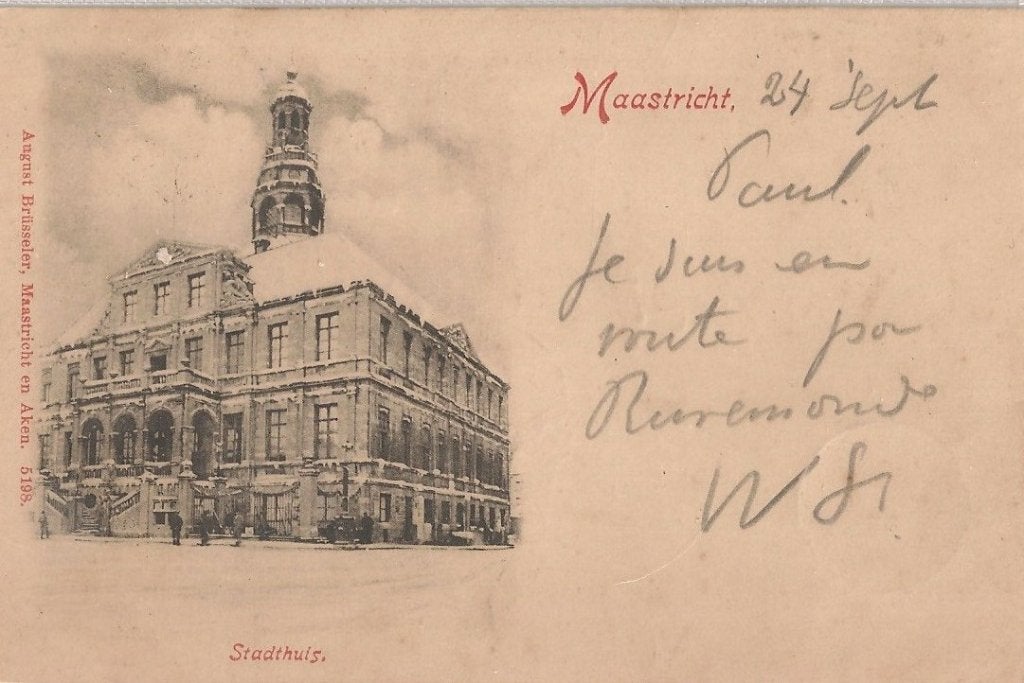 Maastricht, 24 Sept
Paul.
Je suis en
route po
Ruremonde
W St.
August Brüsseler, Maastricht en Aken. 5198.
Stadthuis.